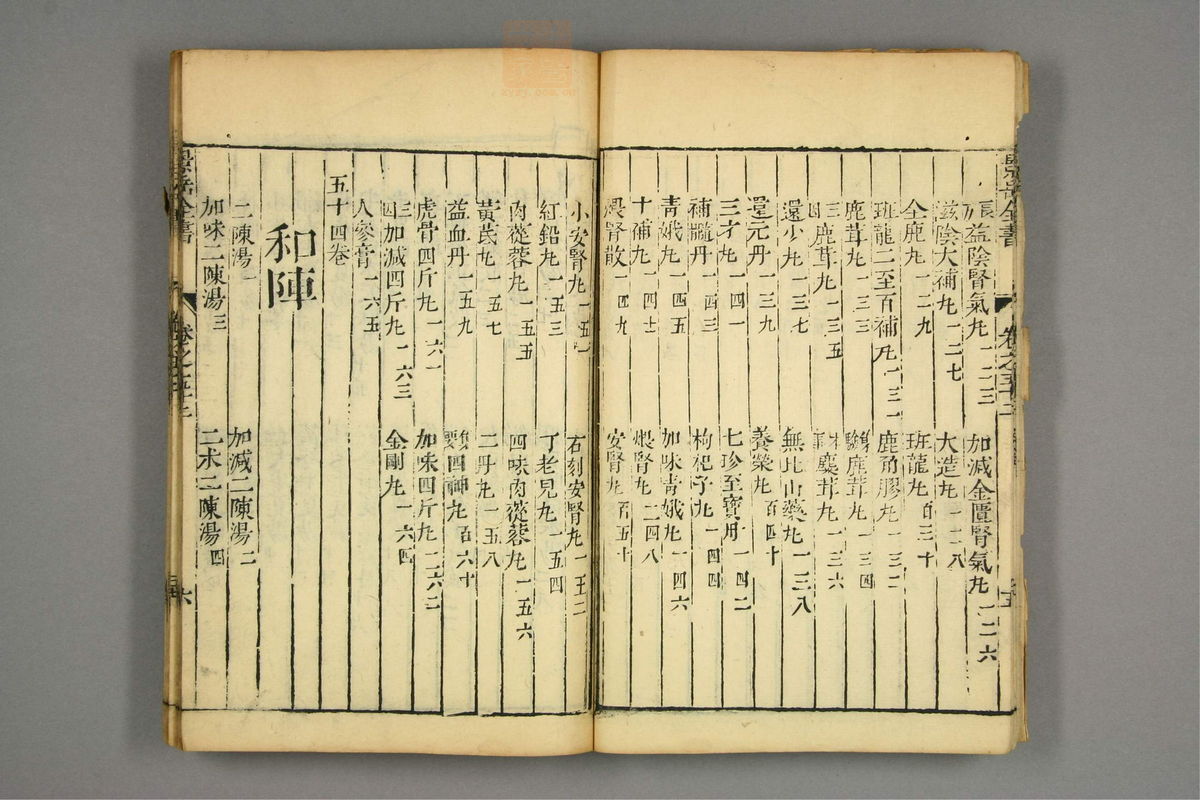 張益陰腎氣丸一二三
加減金匱腎氣丸一二六
滋陰大補丸一二七
大造丸一二八
全鹿丸一二九
班龍丸百三十
班龍二至百補丸一三一
鹿角膠丸一三二
鹿茸丸一三三
鹿茸丸一三四
三因鹿茸丸一三五
麋茸丸一三六
還少丸一三七
無比山藥丸一三八
還元丹一三九
養榮丸百四十
三才丸一四一
七珍至寶丹一四二
補髓丹一四三
枸杞子丸一四四
青娥丸一四五
加味青娥丸一四六
十補丸一四七
煨腎丸一四八
煨腎散一四九
安腎丸百五十
小安腎丸一五一
石刻安腎丸一五二
紅鉛丸一五三
丁老兒丸一五四
肉蓯蓉丸一五五
四味肉蓯蓉丸一五六
黃芪丸一五七
二丹丸一五八
益血丹一五九
四神丸百六十
虎骨四斤丸一六一
加味四斤丸一六二
三因加減四斤丸一六三
金剛丸一六四
人參膏一六五
五十四卷
和陣
二陳湯一
加減二陳湯二
加味二陳湯三
二朮二陳湯四
景岳全書
景岳全書